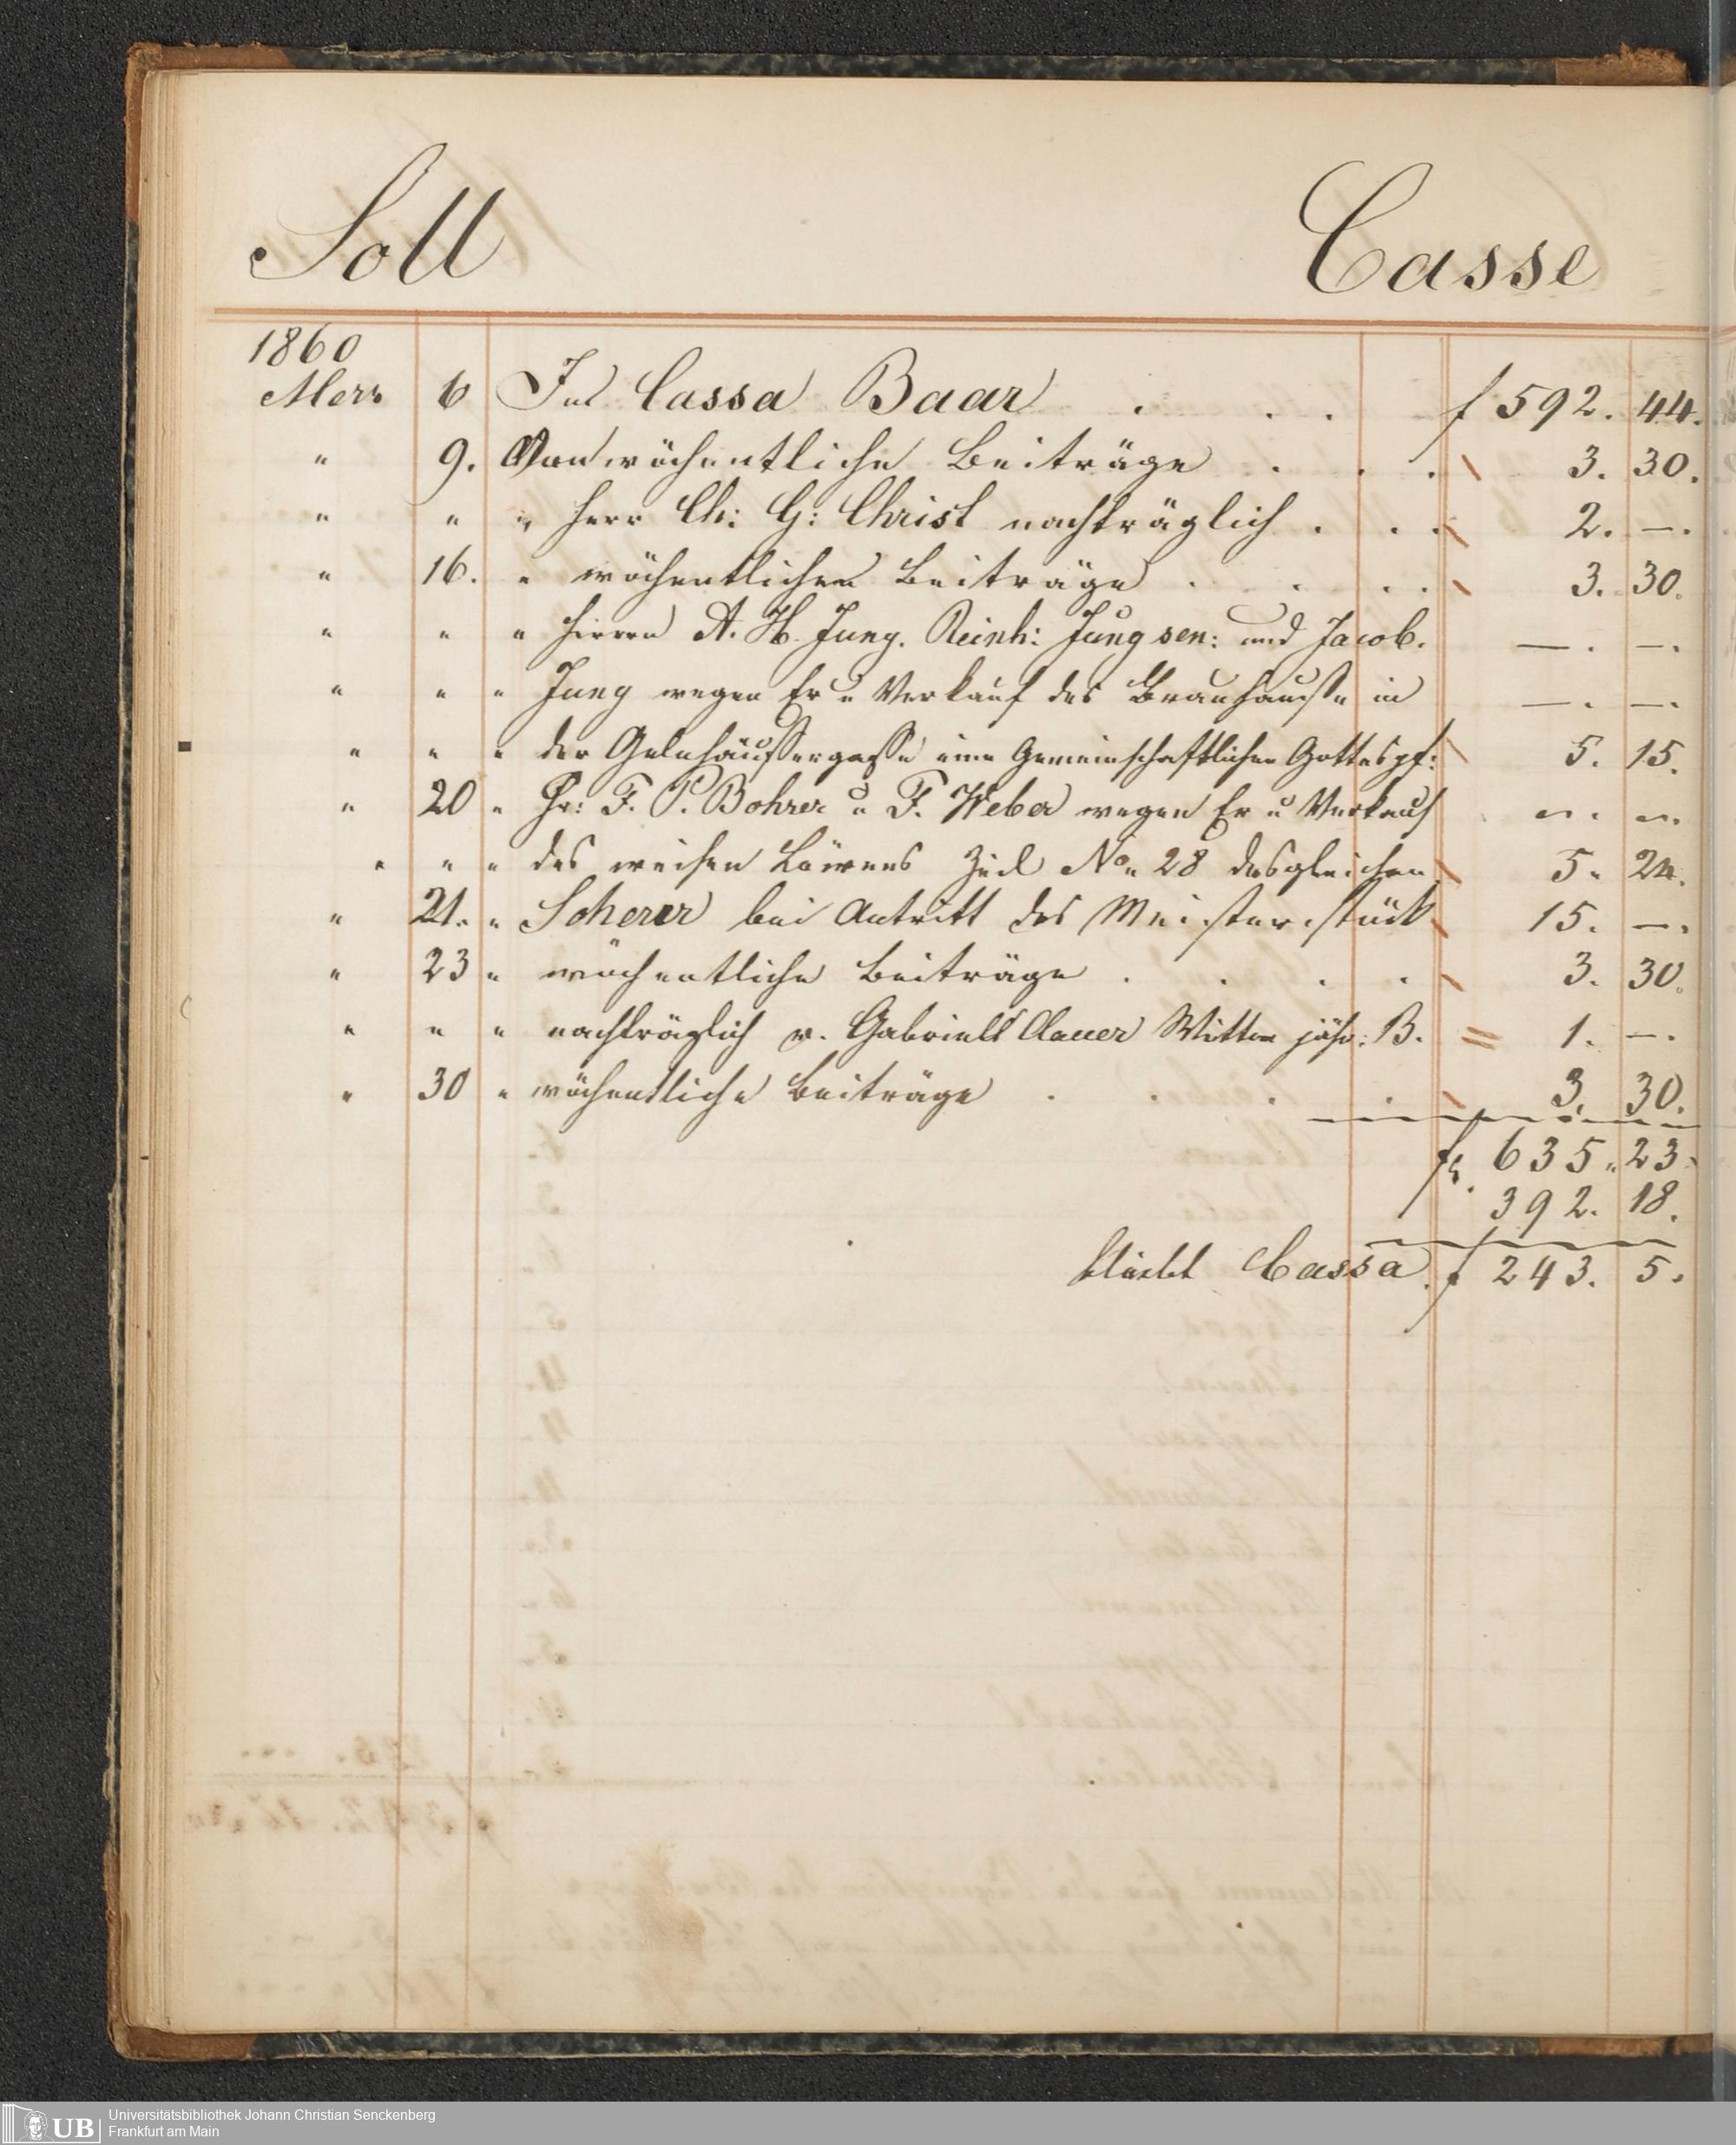 Soll Casse
1860
Merz 6 In Cassa Baar . . . f 592. 44.
" 9. Von wöchentliche Beiträge . . . 3. 30.
" " " Herr Ch: G: Christ nachträglich . . . 2. —.
" 16. " wöchentlichen Beiträge . . . . 3. 30.
" " " Herren A. H. Jung. Reinh: Jung sen: und Jacob. —. —.
" " " Jung wegen Er u Verkauf des Brauhauße in —. —.
" " " der Gelnhäußergaße eine Gemeinschaftlichen Gottespf: 5. 15.
" 20 " Hr: F. P. Bohrer u F. Weber wegen Er u Verkauf —. —.
" " " des weisen Löwens Zeil No 28 desgleichen 5. 24.
" 21. " Scherer bei Antritt des Meisterstück 15. —.
" 23 " wöchentliche Beiträge . . . . 3. 30.
" " " nachträglich v. Gabriell Clauer Wittwe jähr: B. 1. —.
" 30 " wöchentliche Beiträge . . . . 3. 30.
f. 635. 23.
392. 18.
bleibt Cassa f 243. 5.
UB
Universitätsbibliothek Johann Christian Senckenberg
Frankfurt am Main